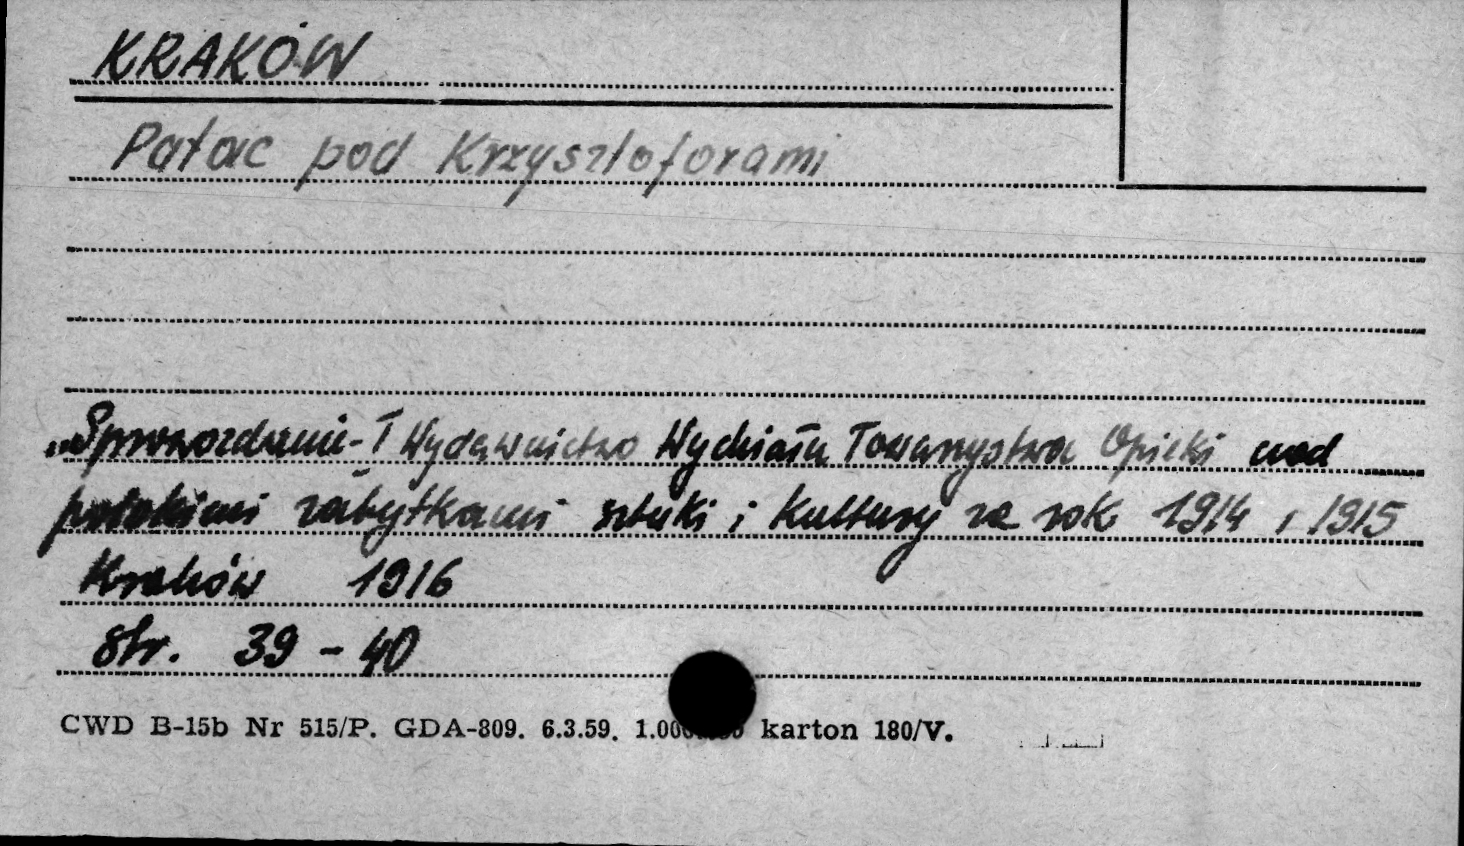 KRAKÓW
Pałac pod Krzysztoforami
„Sprawozdanie - I Wydawnictwo Wydziału Towarzystwa Opieki nad
polskimi zabytkami sztuki i kultury za rok 1914 i 1915
Kraków 1916
Str. 39 - 40
CWD B-15b Nr 515/P. GDA-809. 6.3.59. karton 180/V.